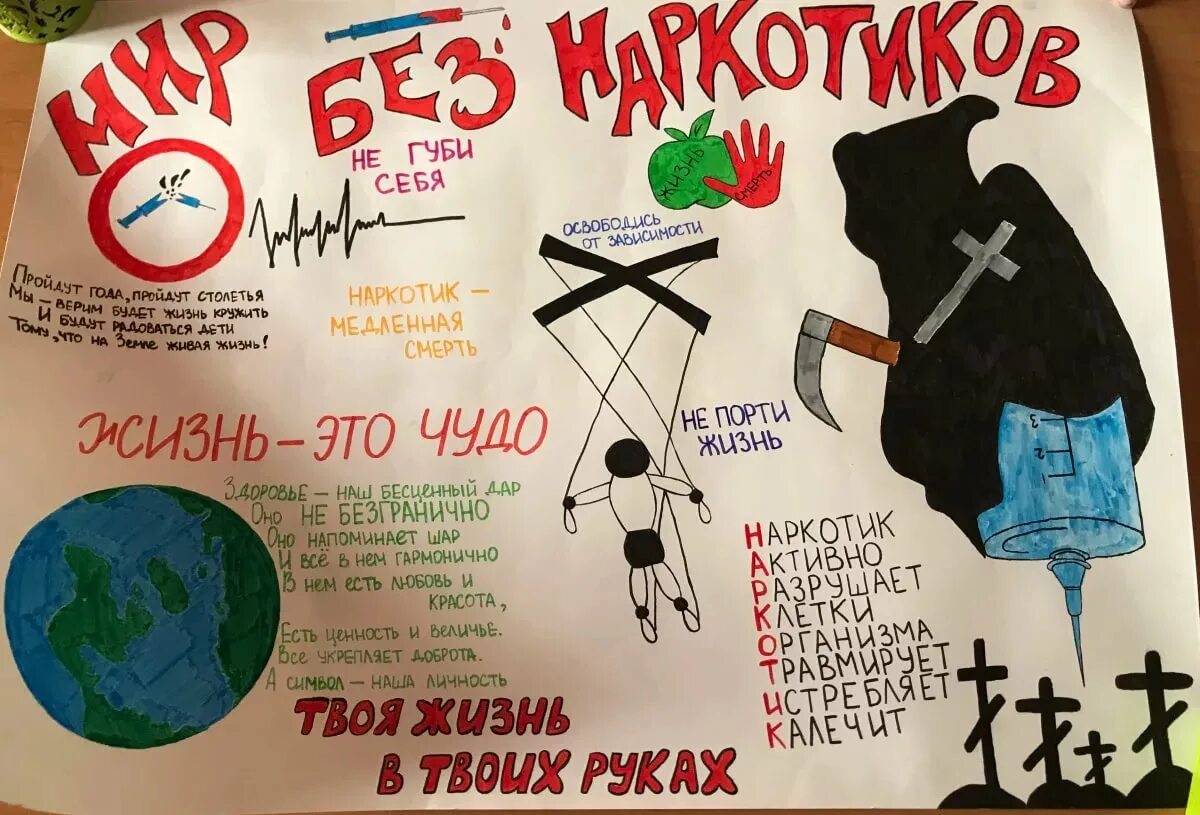 МИР БЕЗ НАРКОТИКОВ
НЕ ГУБИ
СЕБЯ
ЖИЗНЬ
СМЕРТЬ
ОСВОБОДИСЬ
ОТ ЗАВИСИМОСТИ
Пройдут года, пройдут столетья
Мы – верим будет жизнь кружить
И будут радоваться дети
Тому, что на Земле живая жизнь!
НАРКОТИК –
МЕДЛЕННАЯ
СМЕРТЬ
НЕ ПОРТИ
ЖИЗНЬ
ЖИЗНЬ – ЭТО ЧУДО
Здоровье – наш бесценный дар
Оно НЕ БЕЗГРАНИЧНО
Оно напоминает шар
И всё в нем гармонично
В нем есть любовь и
красота,
Есть ценность и величье.
Все укрепляет доброта.
А символ – наша личность
НАРКОТИК
АКТИВНО
РАЗРУШАЕТ
КЛЕТКИ
ОРГАНИЗМА
ТРАВМИРУЕТ
ИСТРЕБЛЯЕТ
КАЛЕЧИТ
3
2
ТВОЯ ЖИЗНЬ
В ТВОИХ РУКАХ